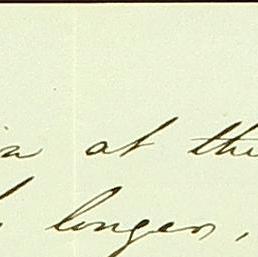 at the
longer,